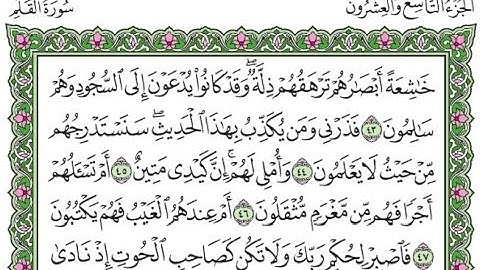 سُورَةُ القَلَمِ الجُزْءُ التَّاسِعُ وَالعِشْرُونَ
خَٰشِعَةً أَبْصَٰرُهُمْ تَرْهَقُهُمْ ذِلَّةٌ ۖ وَقَدْ كَانُوا۟ يُدْعَوْنَ إِلَى ٱلسُّجُودِ وَهُمْ
سَٰلِمُونَ ٤٣ فَذَرْنِى وَمَن يُكَذِّبُ بِهَٰذَا ٱلْحَدِيثِ ۖ سَنَسْتَدْرِجُهُم
مِّنْ حَيْثُ لَا يَعْلَمُونَ ٤٤ وَأُمْلِى لَهُمْ ۚ إِنَّ كَيْدِى مَتِينٌ ٤٥ أَمْ تَسْـَٔلُهُمْ
أَجْرًا فَهُم مِّن مَّغْرَمٍ مُّثْقَلُونَ ٤٦ أَمْ عِندَهُمُ ٱلْغَيْبُ فَهُمْ يَكْتُبُونَ
٤٧ فَٱصْبِرْ لِحُكْمِ رَبِّكَ وَلَا تَكُن كَصَاحِبِ ٱلْحُوتِ إِذْ نَادَىٰ